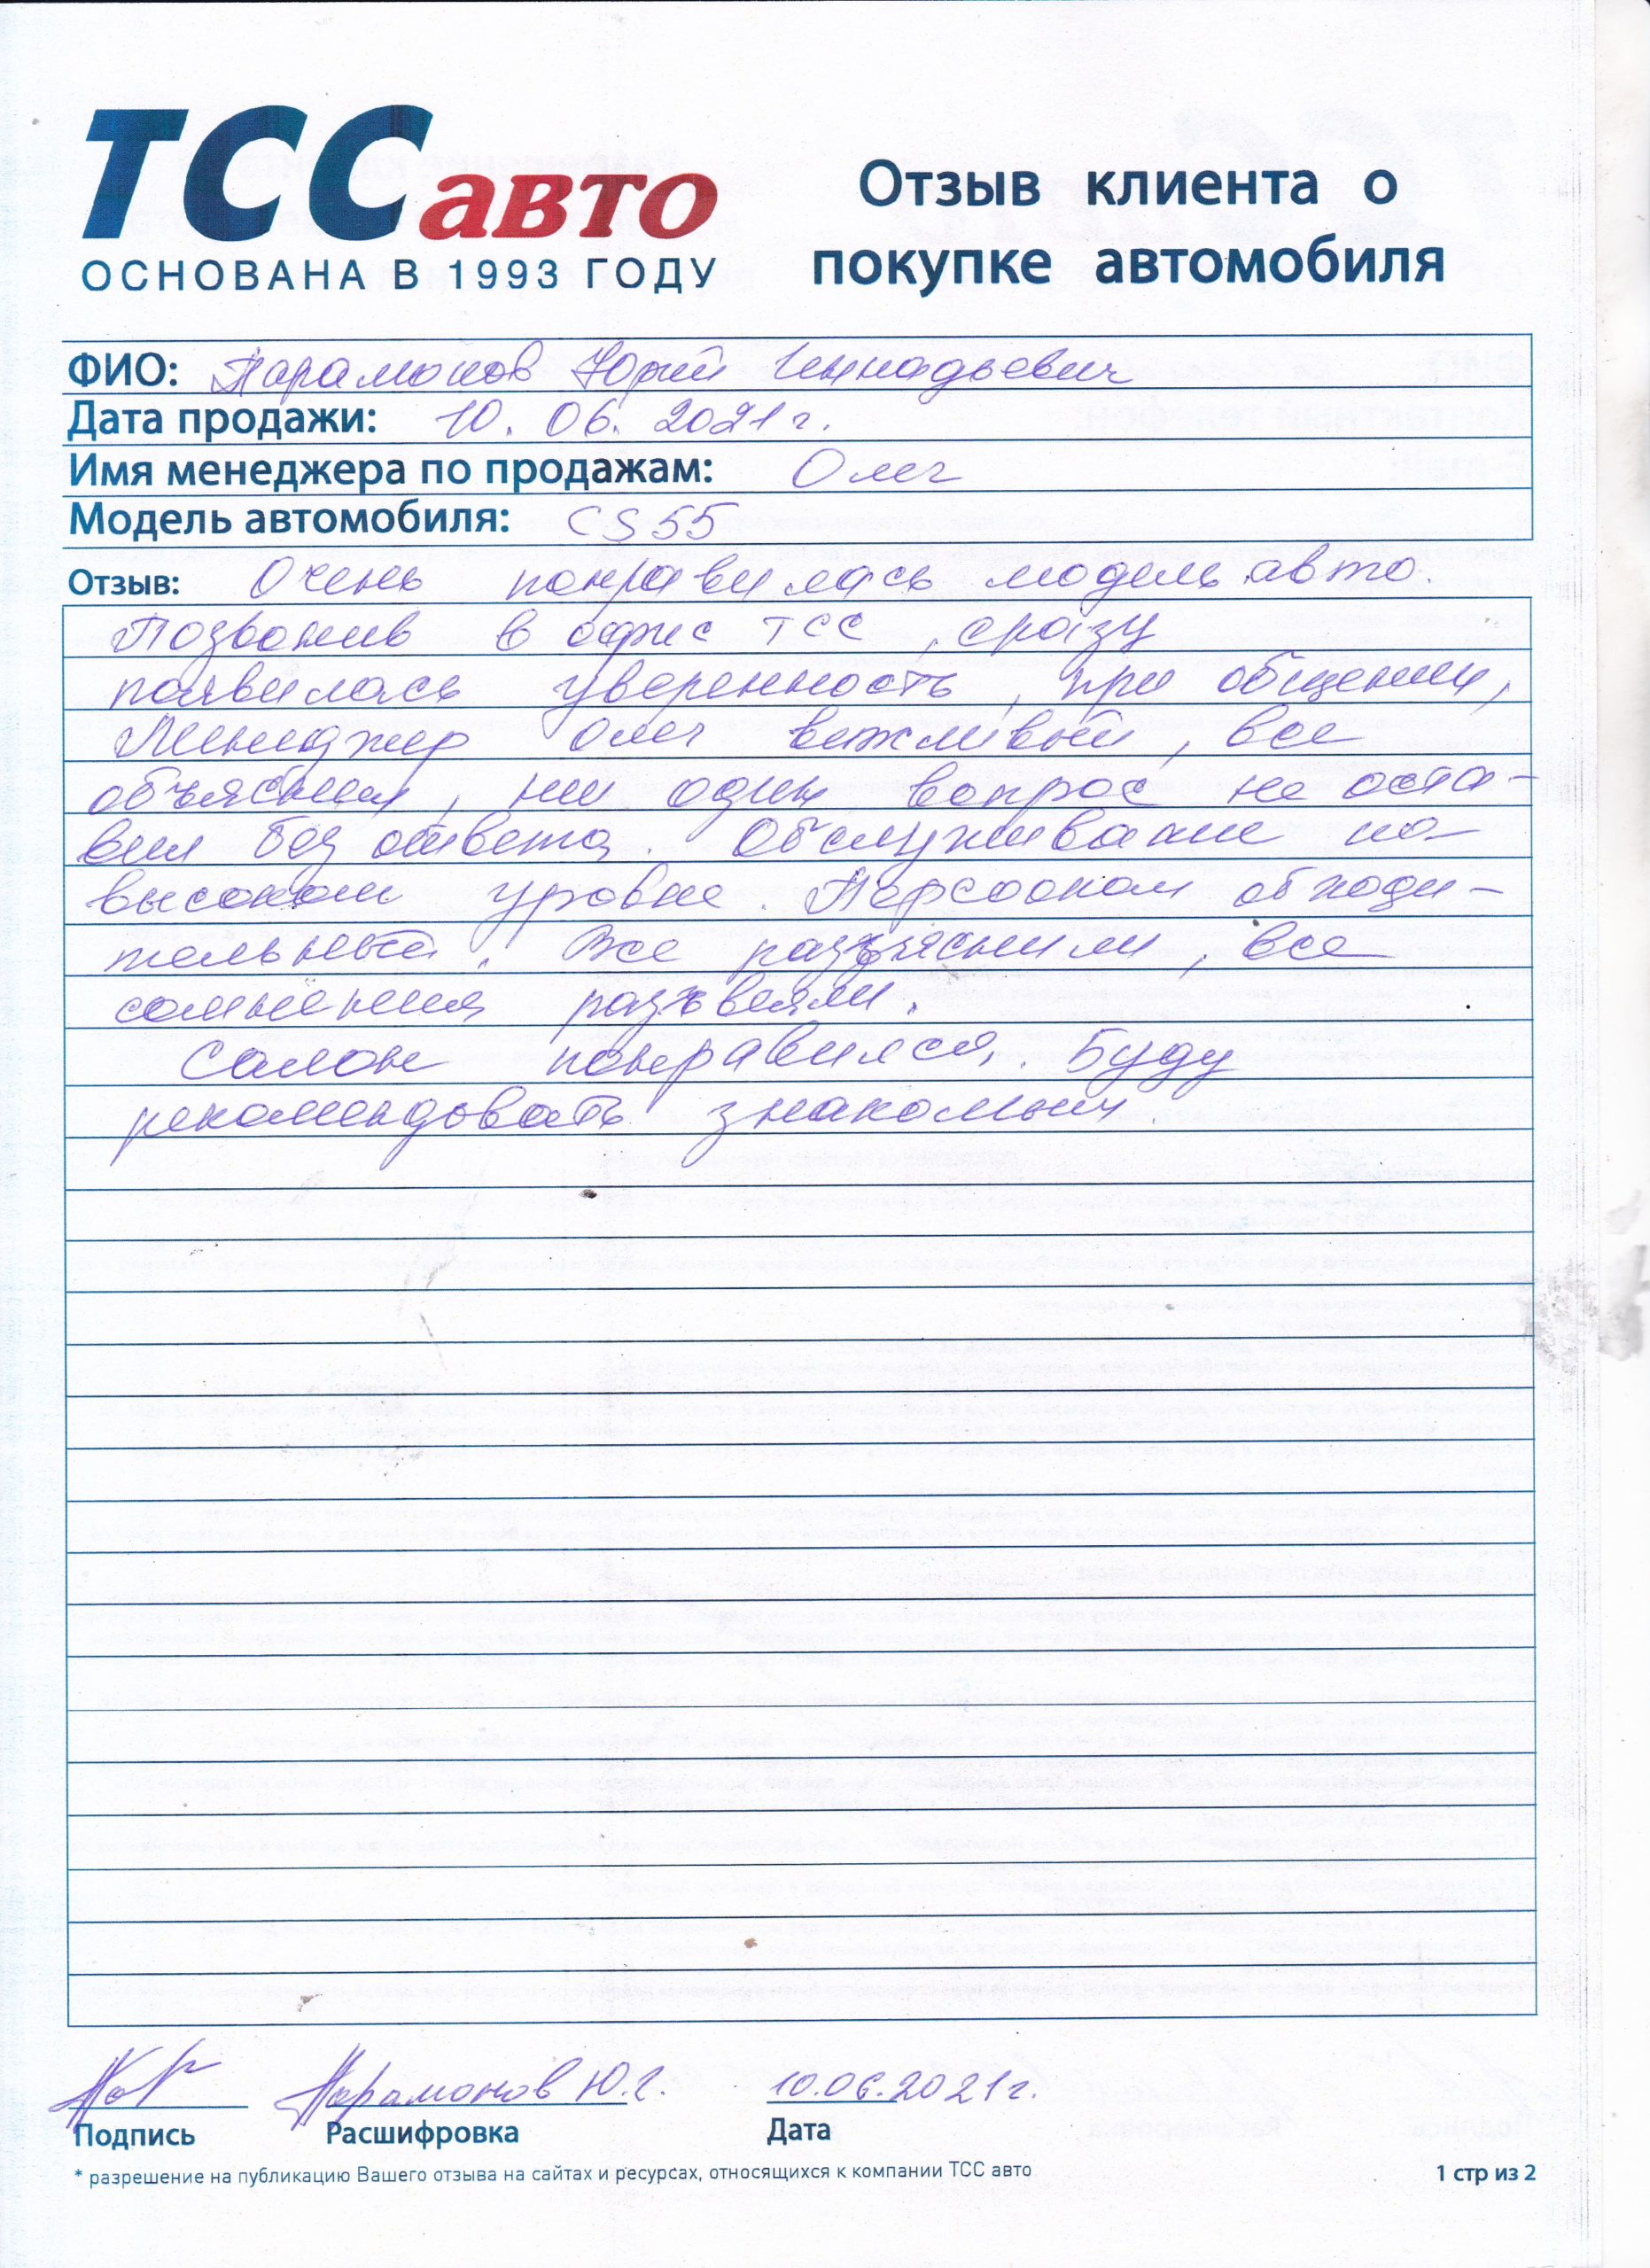 ТССавто
ОСНОВАНА В 1993 ГОДУ
Отзыв клиента о
покупке автомобиля
ФИО: Парамонов Юрий Геннадьевич
Дата продажи: 10.06.2021г.
Имя менеджера по продажам: Олег
Модель автомобиля: CS55
Отзыв: Очень понравилась модель авто.
Позвонив в офис ТСС, сразу
появилась уверенность, при общении,
Менеджер Олег вежливый, все
объяснил, ни один вопрос не оста-
вил без ответа. Обслуживание на
высоком уровне. Персоонал обходи-
тельный. Все разъяснили, все
сомнения разъвеяли.
Салон понравился. Буду
рекомендовать знакомым.
Парамонов Ю.Г. 10.06.2021г.
Подпись Расшифровка Дата
* разрешение на публикацию Вашего отзыва на сайтах и ресурсах, относящихся к компании ТСС авто
1 стр из 2